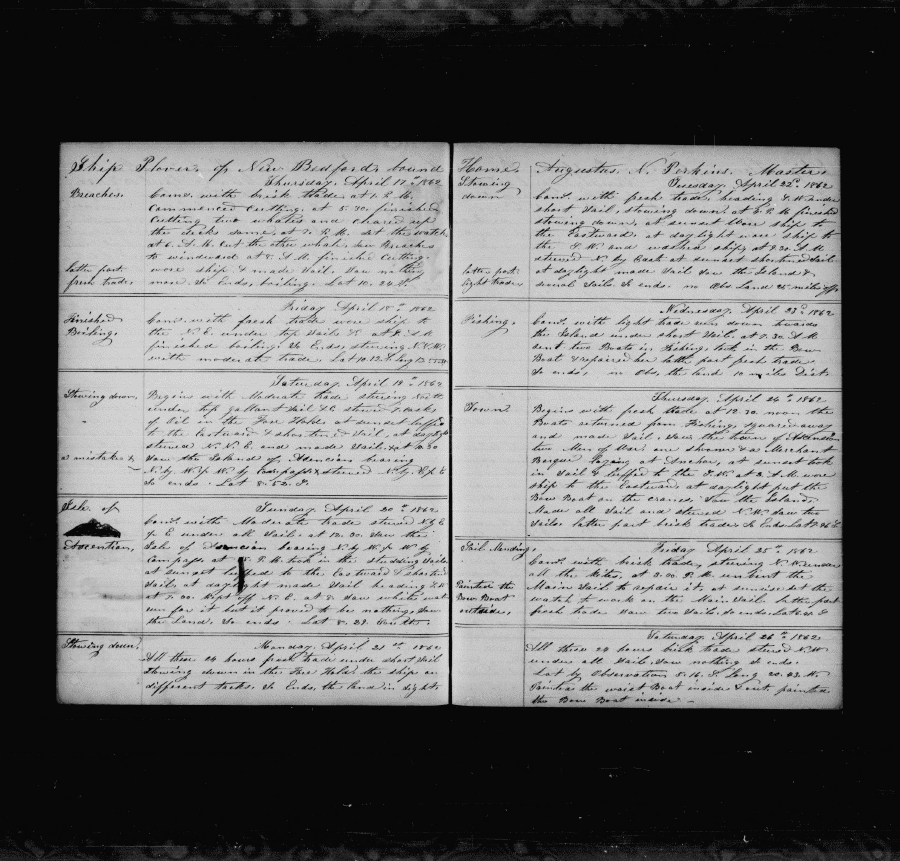 Ship Plover of New Bedford bound
Thursday, April 17th 1862
Breaches.
Comd. with brisk trades at 1. P.M.
Commenced Cutting. at 5.30 finished
Cutting two whales and cleared up
the decks same, at 7. P.M. Set the watch,
at 6. A.M. Cut the other whale, Saw Breaches
to windward at 8. A.M finished Cutting.
latter part
fresh trades
wore ship & made Sail. Saw nothing
more So Ends, boiling. Lat 10.24 S.
Friday April 18th 1862
Finished
Boiling.
Comd. with fresh trade wore ship to
the N.E. under top Sails
finished boiling So Ends, steering N.N.W.
with moderate trade. Lat 10.12 S.
Saturday. April 19th 1862
Stowing down,
Begins with Moderate trade steering
under top gallant Sail &c stowed casks
of Oil in the Fore Hold, at sunset luffed
to the Eastward & shortened Sail, at daylight
steered N.N.E. and made Sail,
a mistake
Saw the Island of Asencion bearing
N. by W. 1/2 W. by Compass & steered N. by W. 1/2 W
So ends. Lat 8.52. S.
Sunday. April 20th 1862
Isle. of
Ascention,
Comd. with Moderate trade steered N by E
1/2 E under all Sail. at 12.30 Saw the
Isle of Asencion bearing N. by W. 1/2 W. by
Compass at P.M. took in the studding Sails
at sunset luffed to the Eastward & shortened
Sail, at daylight made Sail heading S.W.
at 7.00 Kept off N.E. at 8. Saw white water
run for it but it proved to be nothing, Saw
the Land. So ends. Lat 8.28.
Monday. April 21st 1862
Stowing down,
All these 24 hours fresh trade under short Sail
Stowing down in the Fore Hold, the ship on
different tacks. So Ends, the land in sight.
Home, Augustus. N. Perkins. Master.
Tuesday. April 22nd 1862
Stowing
down
Comd. with fresh trade, heading S.W. under
short Sail, stowing down, at P.M finished
stowing down, at sunset Wore ship to
the Eastward, at daylight wore ship to
the S.W. and washed ship, at 7.30 A.M
steered N. by East at sunset shortened Sail
latter part
light trades
at daylight made Sail Saw the Island &
several Sails So ends. in Obs Land 25 miles off,
Wednesday. April 23rd 1862
Fishing,
Comd. with light trade run down towards
the Island under short Sail. at 7.30 A.M
sent two Boats in Fishing, took in the Bow
Boat & repaired her latter part fresh trade
So ends, in Obs. the land 10 miles Dist
Thursday April 24th 1862
Town
Begins with fresh trade at 12.30 noon the
Boats returned from Fishing, squared away
and made Sail, Saw the town of Ascension
two Men of War, one schooner & a Merchant
Barque laying at Anchor, at sunset took
in Sail & luffed to the S.W. at 2. A.M wore
ship to the Eastward, at daylight put the
Bow Boat on the cranes, Saw the Island,
Made all Sail and steered N.W. Saw two
Sails latter part brisk trade So Ends
Friday April 25th 1862
Sail. Mending,
Comd. with brisk trade, steering N.W. under
all the Kites, at 3.00 P.M. unbent the
Main Sail to repair it, at sunrise set the
Painted the
Bow Boat
outside,
watch to work on the Main Sail, latter part
fresh trade Saw two Sails. So ends
Saturday April 26th 1862,
All these 24 hours brisk trade steered N.W.
under all Sail Saw nothing So ends.
Lat by Observation 5.16. S. Long 20.03. W.
Painted the waist Boat inside & out. painted
the Bow Boat inside -